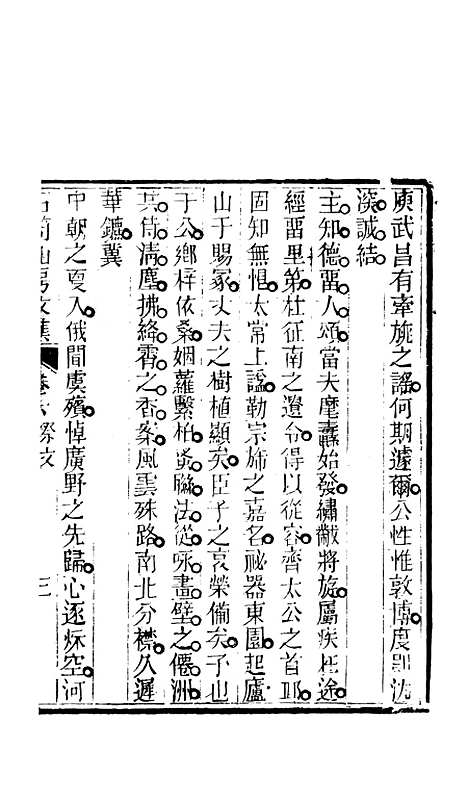 庾武昌有牽旒之謡何期遽爾公性惟敦博度卽沈
深誠結
主知德畱人頌當大麾纛始發繡黻將旋屬疾枉途
經畱里第杜征南之遺令得以從容齊太公之首邱
固知無恨太常上謚勒宗旆之嘉名祕器東園起廬
山于賜冢丈夫之樹植顯矣臣子之哀榮備矣子也
于公鄉梓依桑姻蘿繫柏蚤聯法從咏畫壁之僊洲
共侍淸塵拂絳霄之香案風雲殊路南北分襟久遲
華鑣冀
中朝之夏入俄聞虞殯悼廣野之先歸心逐秋空河
石笥山房文集 卷六祭文 三